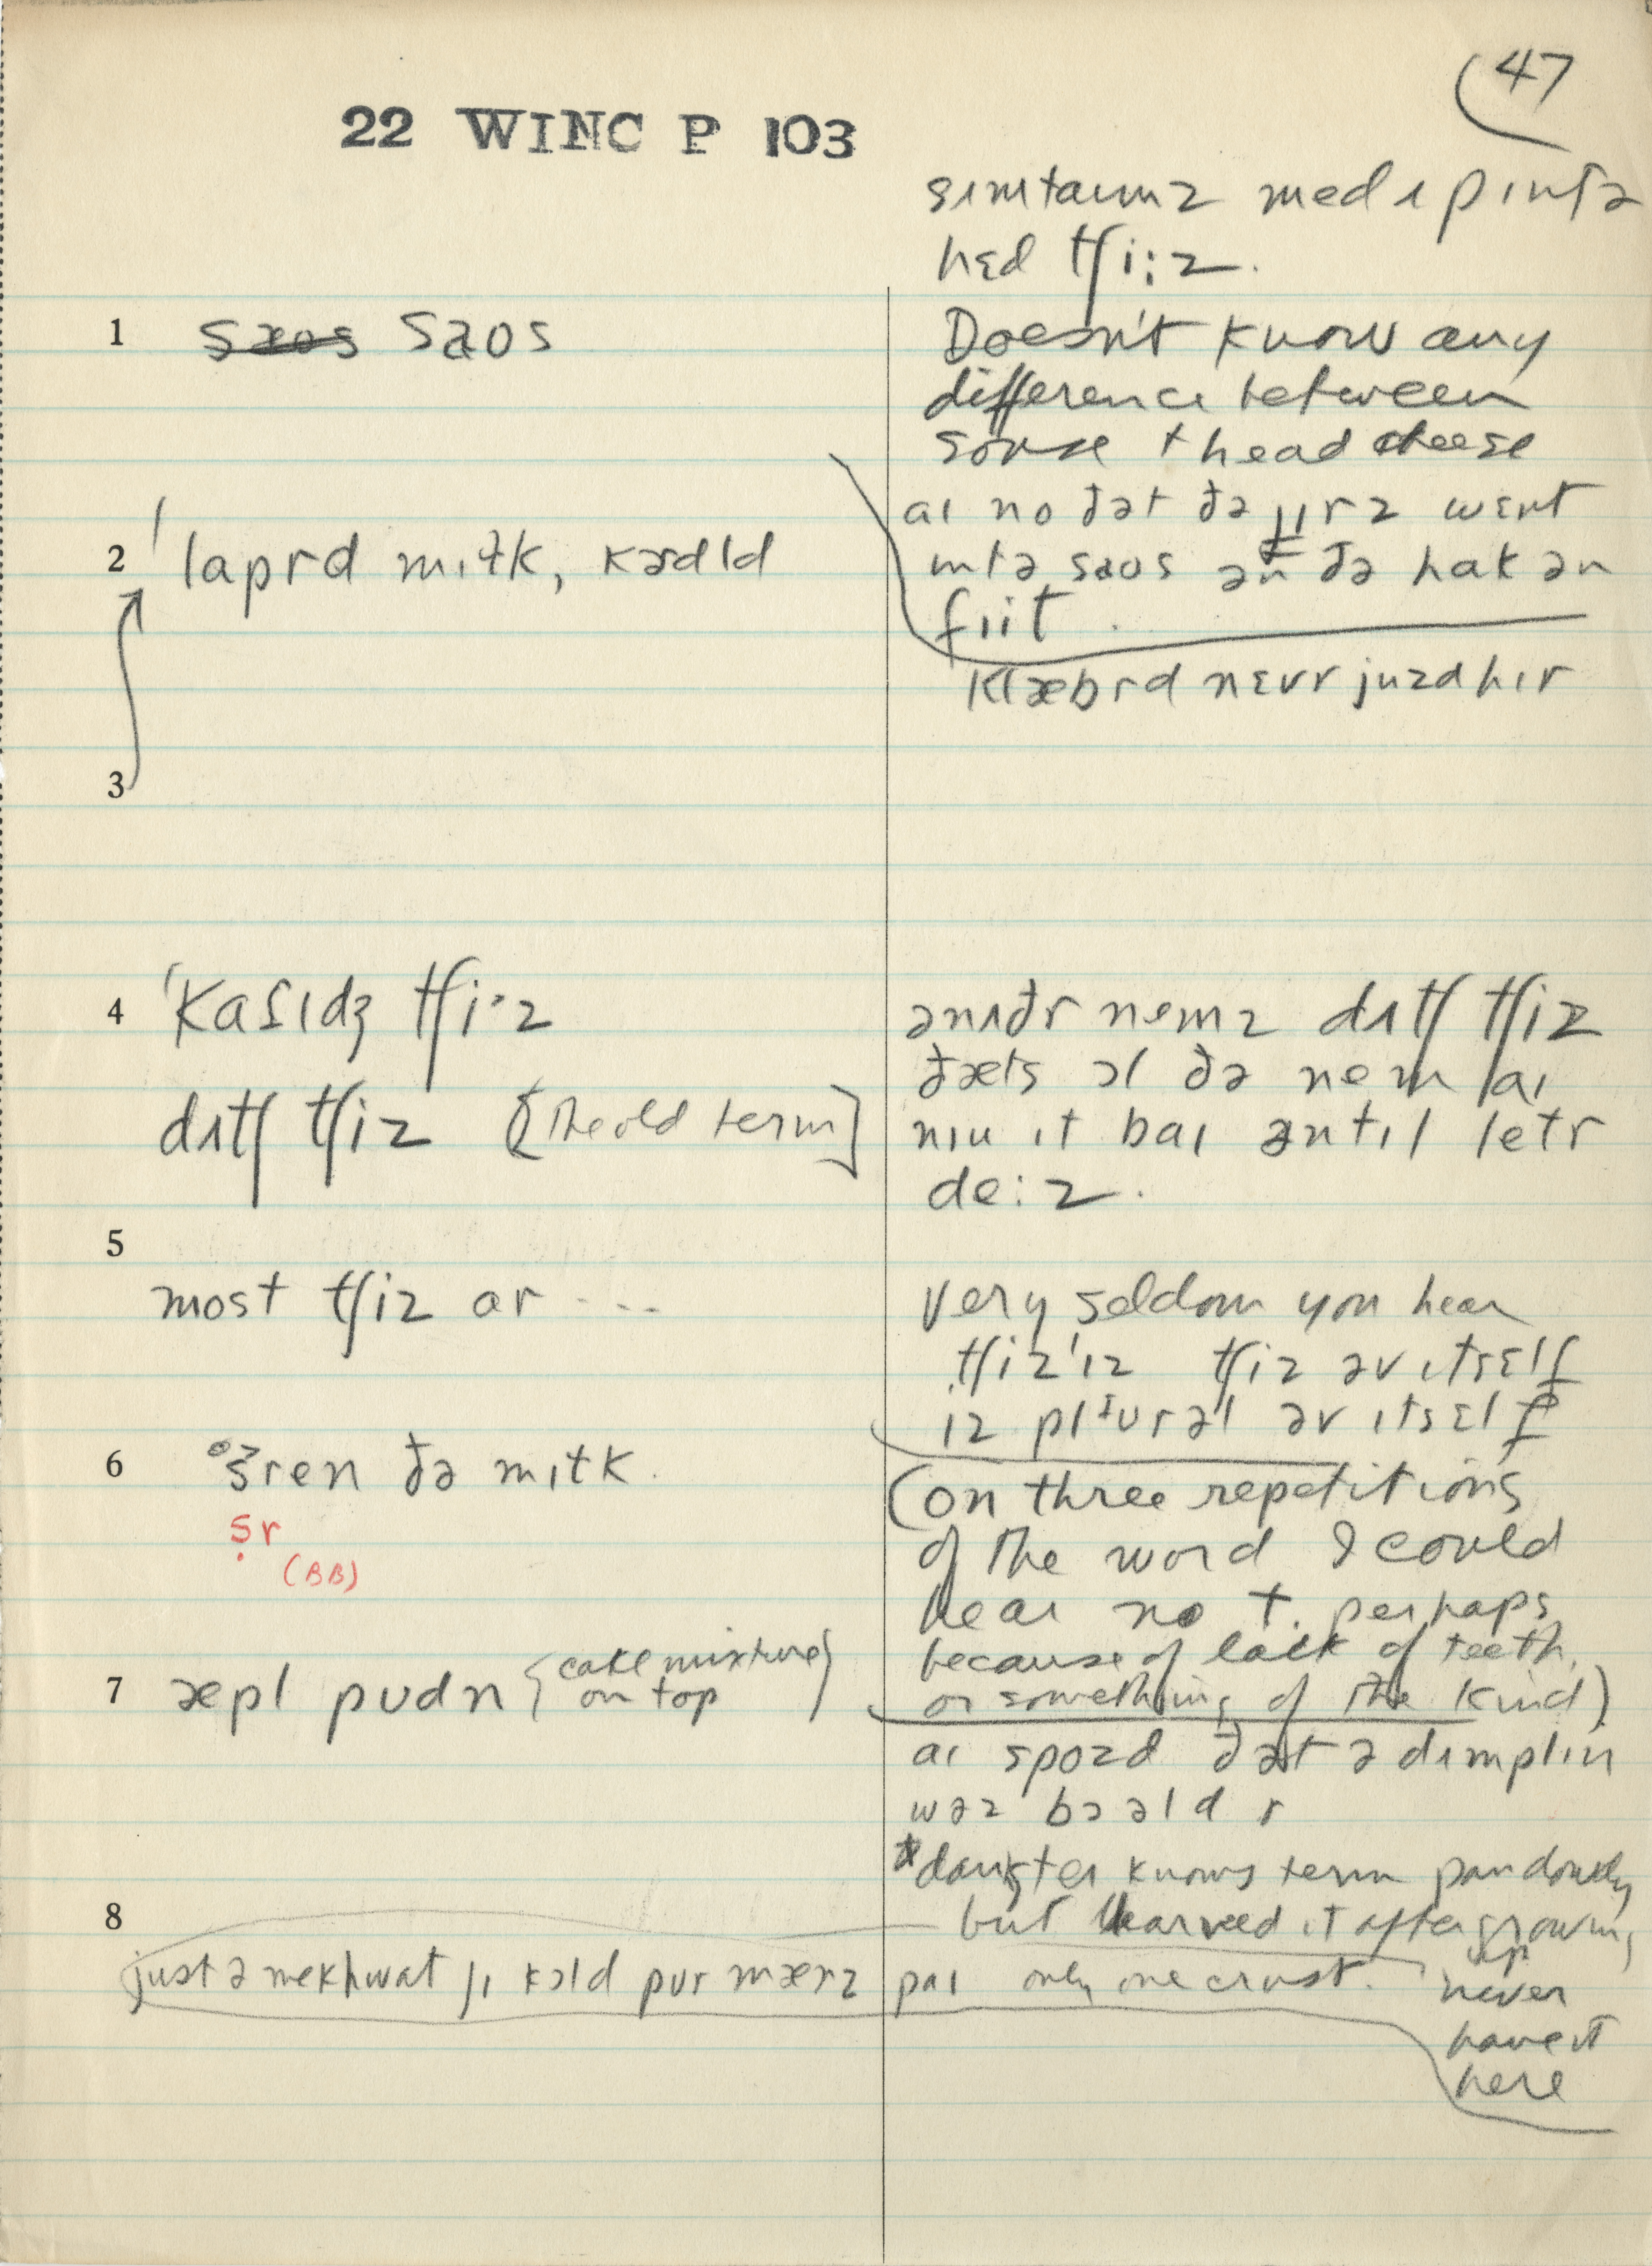 47
22 WINC P 103
sɪmtaɪmz med ɪ pɪntə
hɛd tʃi:z.
1 saos saos
Doesn't know any
difference between
souse + head cheese
aɪ no ðət ðə jɪrz wɛnt
ɪntə saos ən ðə hak ən
fiit.
2 ˈlaprd mɪɫk, kɜdld
klæbrd nɛvr juzd hɪr
3
4 ˈkasɪdʒ tʃi·z
dʌtʃ tʃiz [the old term]
ənʌðr nemz dʌtʃ tʃiz
ðæts ɔl ðə nem aɪ
nɪu ɪt baɪ əntɪl letr
de:z.
5
most tʃiz ar ...
Very seldom you hear
tʃiz'ɪz tʃiz əv ɪtsɛlf
ɪz plɪurəl əv ɪtsɛlf
6 sren ðə mɪɫk.
sr
(BB)
(on three repetitions
of the word I could
hear no t. perhaps
because of lack of teeth,
or something of the kind)
7 æpl pudn {cake mixture
on top}
aɪ spozd ðət ə dʌmplɪn
wəz bɔəld r
*daughter knows term pandowdy
but learned it after growing
up
8
just ə mek hwat jɪ kɔld pur mænz paɪ only one crust.
never
have it
here